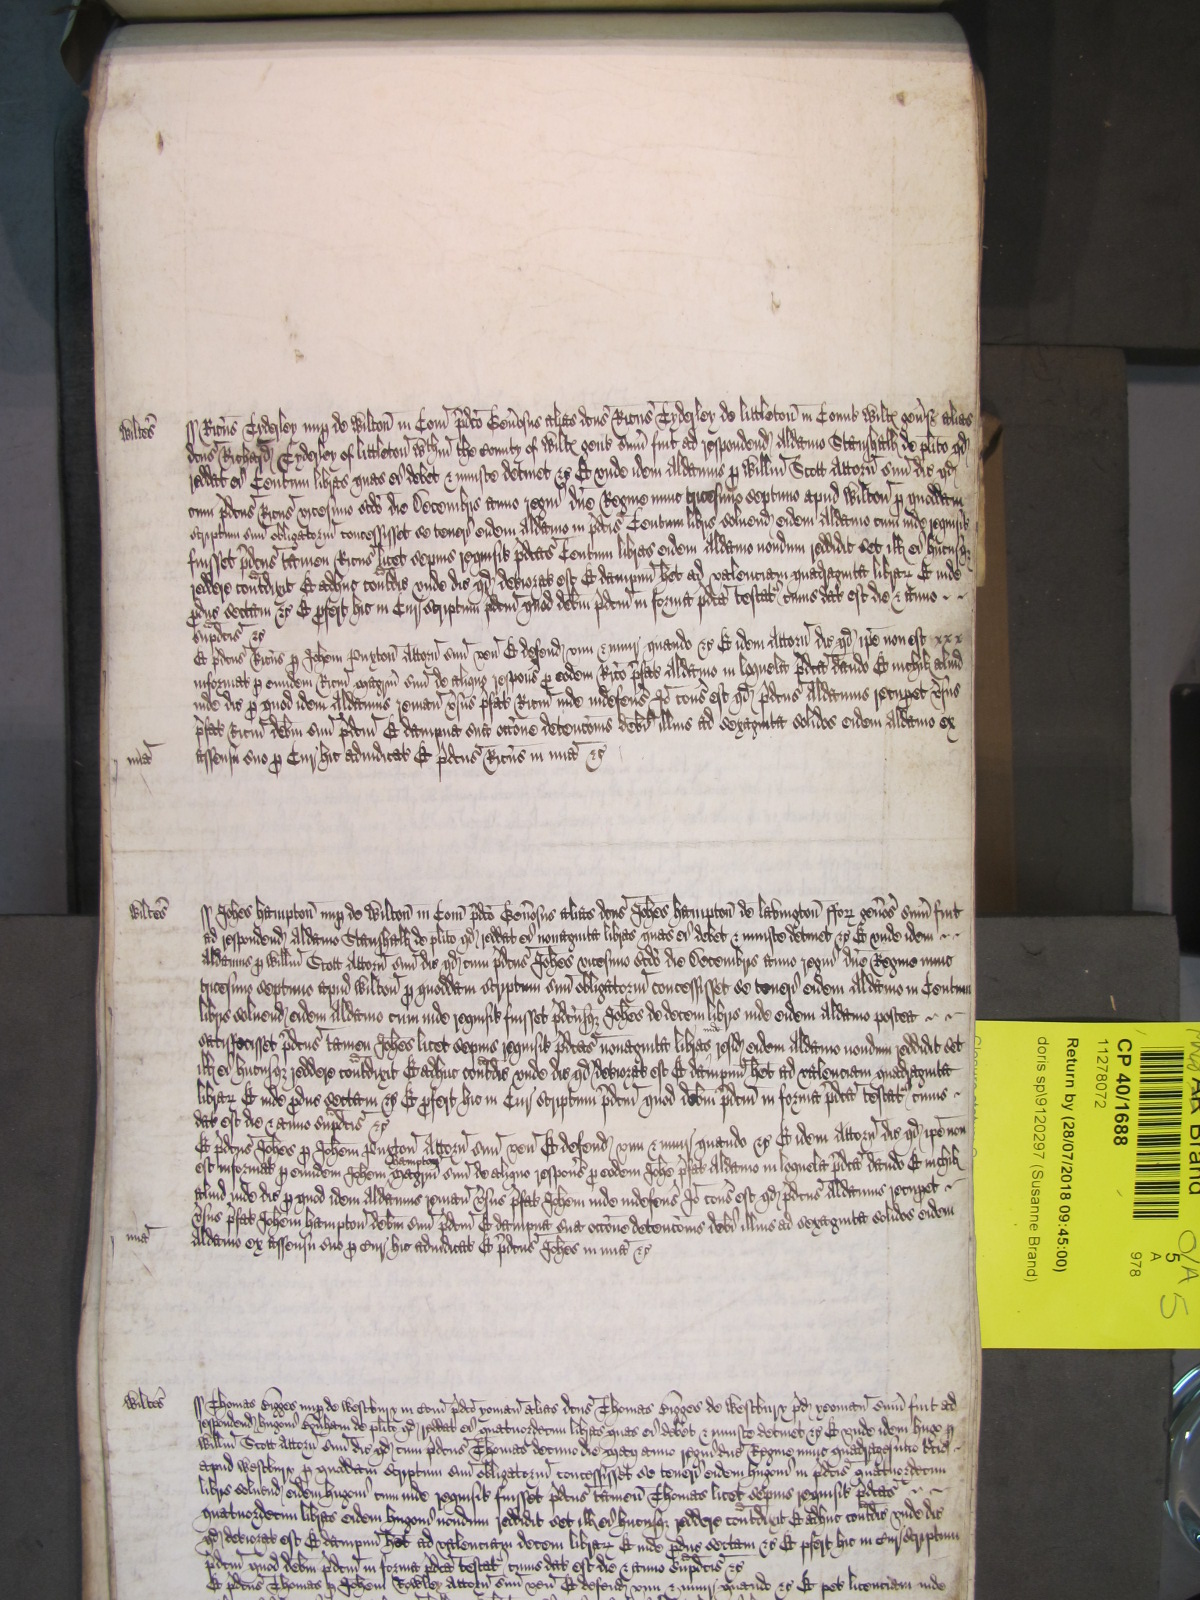 Wiltes
ss Ricus Tydesley nup de Wilton in Com pdco Genosus alias dcus Ricus Tydesley de littleton in Comit Wiltes genose alias
dcus Richard Tydesley of littleton within the county of Wiltes gent sum fuit ad respondend Aldamo Stanshall de plito qd
reddat ei Centum libras quas ei debet & iniuste detinet &c Et unde idem Aldamus p Willm Scott Attorn suu dic qd
cum pdcus Ricus vicesimo scdo die Decembris anno regni dne Regine nunc tricesimo septimo apud Wilton p quoddam
scriptum suu obligatoriu concessisset se teneri eidem Aldamo in pdcis Centum libris solvend eidem Aldamo cum inde requisit
fuisset pdcus tamen Ricus licet sepius requisit pdcas Centum libras eidem Aldamo nondum reddidit set ill ei hucusq
reddere contradixit Et adhuc contradic unde dic qd deteriorat est Et dampnu het ad valenciam quadraginta librar Et inde
pduc sectam &c Et pfert hic in Cur scriptum pdcm quod debm pdcm in forma pdca testat cuius dat est die & anno
supdcis &c
Et pdcus Ricus p Johem Puxton Attorn suu ven Et defend vim & iniur quando &c Et idem Attorn dic qd ipe non est
informat p eundem Ricum magrm suu de aliquo respons p eodem Rico pfat Aldamo in loquela pdca dando Et nichil aliud
inde dic p quod idem Aldamus reman vsus pfat Ricum inde indefens Io cons est qd pdcus Aldamus recupet vsus
pfat Ricum debm suu pdcm Et dampna sua occone detencois debi illius ad sexaginta solidos eidem Aldamo ex
mia
assensu suo p Cur hic adiudicat Et pdcus Ricus in mia &c
Wiltes
ss Johes Hampton nup de Wilton in Com pdco Genosus alias dcus Johes Hampton de Labington genos sum fuit
ad respondend Aldamo Stanshall de plito qd reddat ei nonaginta libras quas ei debet & iniuste detinet &c Et unde idem
Aldamus p Willm Scott Attorn suu dic qd cum pdcus Johes vicesimo scdo die Decembris anno regni dne Regine nunc
tricesimo septimo apud Wilton p quoddam scriptum suu obligatoriu concessisset se teneri eidem Aldamo in Centum
libris solvend eidem Aldamo cum inde requisit fuisset pdcusq Johes de decem libris inde eidem Aldamo postea
satisfecisset pdcus tamen Johes licet sepius requisit pdcas nonaginta libras inde resid eidem Aldamo nondum reddidit set
ill ei hucusq reddere contradixit Et adhuc contradic unde dic qd deteriorat est Et dampnu het ad valenciam quadraginta
librar Et inde pduc sectam &c Et pfert hic in Cur scriptum pdcm quod debm pdcm in forma pdca testat cuius
dat est die & anno supdcis &c
Et pdcus Johes p Johem Puxton Attorn suu ven Et defend vim & iniur quando &c Et idem Attorn dic qd ipe non
est informat p eundem Johem Hampton magrm suu de aliquo respons p eodem Johe pfat Aldamo in loquela pdca dando Et nichil
aliud inde dic p quod idem Aldamus reman vsus pfat Johem inde indefens Io cons est qd pdcus Aldamus recupet
vsus pfat Johem Hampton debm suu pdcm Et dampna sua occone detencois debi illius ad sexaginta solidos eidem
mia
Aldamo ex assensu suo p Cur hic adiudicat Et pdcus Johes in mia &c
Wiltes
ss Thomas nup de Westbury in com pdco yoman alias dcus Thomas de Westbury pd yeoman sum fuit ad
respondend Hugoni de plito qd reddat ei quatuordecim libras quas ei debet & iniuste detinet &c Et unde idem Hugo p
Willm Scott Attorn suu dic qd cum pdcus Thomas decimo die May anno regni dne Regine nunc quadragesimo
apud Westbury p quoddam scriptum suu obligatoriu concessisset se teneri eidem Hugoni in pdcis quatuordecim
libris solvend eidem Hugoni cum inde requisit fuisset pdcus tamen Thomas licet sepius requisit pdcas
quatuordecim libras eidem Hugoni nondum reddidit set ill ei hucusq reddere contradixit Et adhuc contradic unde dic
qd deteriorat est Et dampnu het ad valenciam decem librar Et inde pduc sectam &c Et pfert hic in Cur scriptum
pdcm quod debm pdcm in forma pdca testat cuius dat est die & anno supdcis &c
Et pdcus Thomas p Johem Rowley Attorn suu ven Et defend vim & iniur quando &c Et pet licenciam inde
AR Brand
O/A 5
5
A
978
CP 40/1688
11278072
Return by (28/07/2018 09:45:00)
doris sp\9120297 (Susanne Brand)